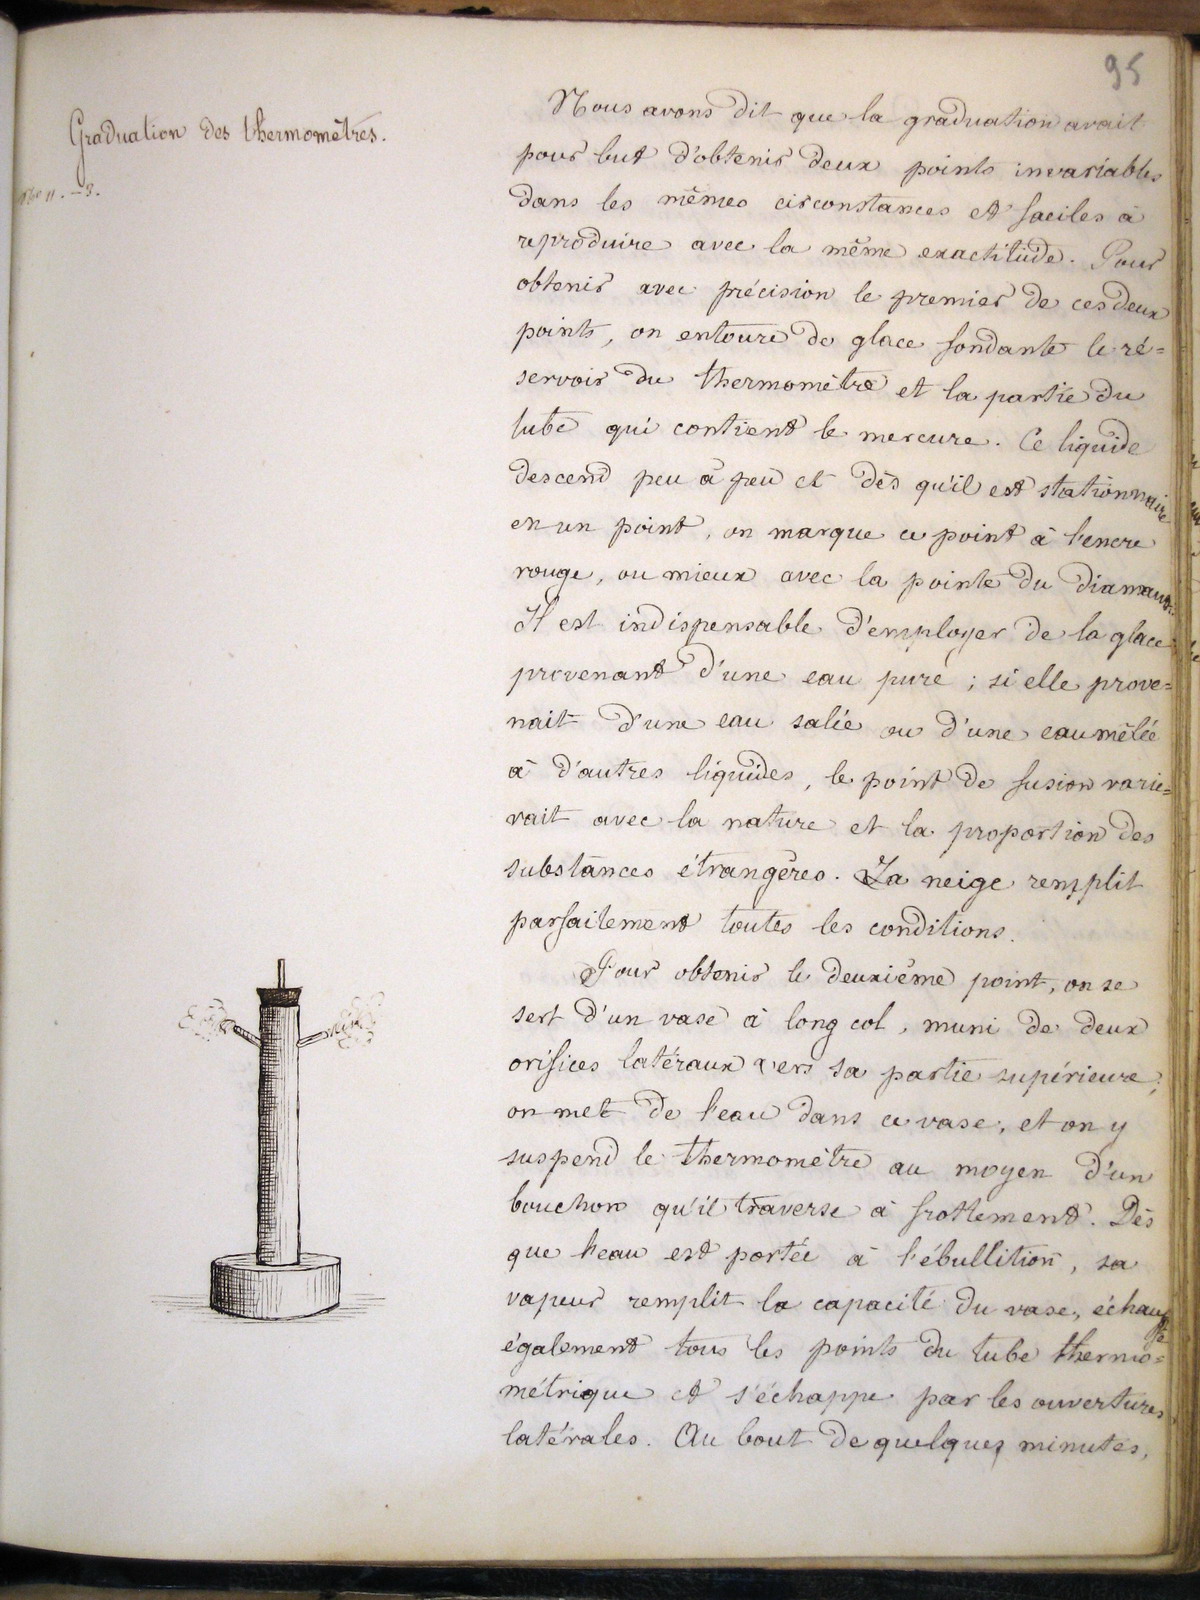 95
Graduation des thermomètres.
11. - 3.
Nous avons dit que la graduation avait
pour but d'obtenir deux points invariables
dans les mêmes circonstances et faciles à
reproduire avec la même exactitude. Pour
obtenir avec précision le premier de ces deux
points, on entoure de glace fondante le ré=
servoir du thermomètre et la partie du
tube qui contient le mercure. Ce liquide
descend peu à peu et dès qu'il est stationnaire
en un point, on marque ce point à l'encre
rouge, ou mieux avec la pointe du diamant.
Il est indispensable d'employer de la glace
provenant d'une eau pure ; si elle prove=
nait d'une eau salée ou d'une eau mêlée
à d'autres liquides, le point de fusion varie=
rait avec la nature et la proportion des
substances étrangères. La neige remplit
parfaitement toutes les conditions.
Pour obtenir le deuxième point, on se
sert d'un vase à long col, muni de deux
orifices latéraux vers sa partie supérieure;
on met de l'eau dans ce vase, et on y
suspend le thermomètre au moyen d'un
bouchon qu'il traverse à frottement. Dès
que l'eau est portée à l'ébullition, sa
vapeur remplit la capacité du vase, échauffe
également tous les points du tube thermo=
métrique et s'échappe par les ouvertures
latérales. Au bout de quelques minutes,